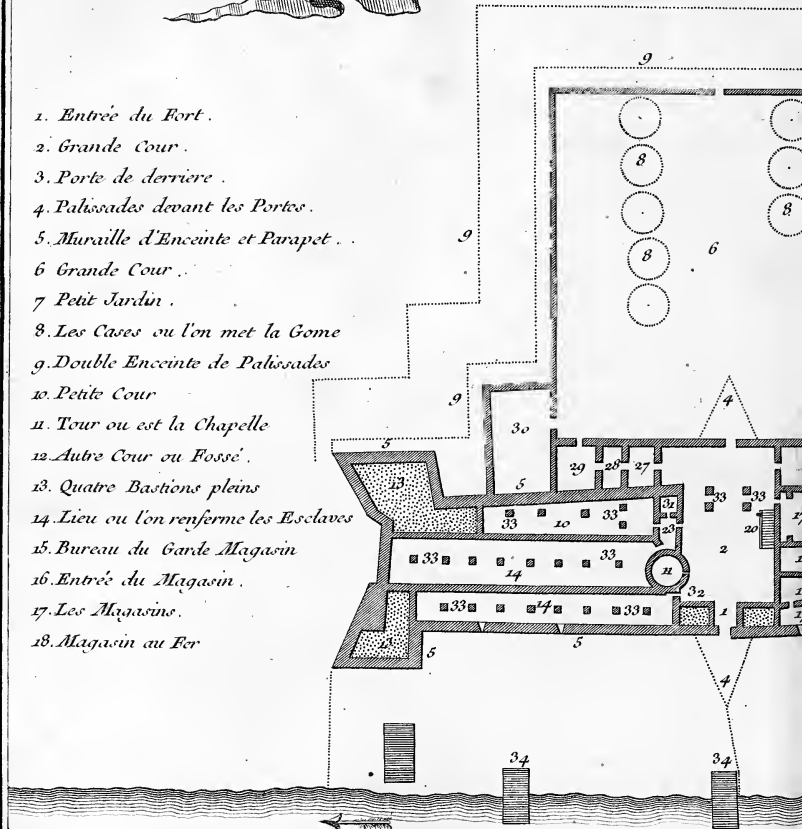 1. Entrée du Fort.
2. Grande Cour.
3. Porte de derriere.
4. Palissades devant les Portes.
5. Muraille d'Enceinte et Parapet.
6 Grande Cour.
7 Petit Jardin.
8. Les Cases ou l'on met la Gome
9. Double Enceinte de Palissades
10. Petite Cour
11. Tour ou est la Chapelle
12. Autre Cour ou Fossé.
13. Quatre Bastions pleins
14. Lieu ou l'on renferme les Esclaves
15. Bureau du Garde Magasin
16. Entrée du Magasin.
17. Les Magasins.
18. Magasin au Fer
9
8
8
9
8
6
4
9
30
5
29
28
27
13
5
33
33
31
33
33
10
33
23
20
17
2
33
33
14
11
32
33
14
33
1
5
5
4
34
34